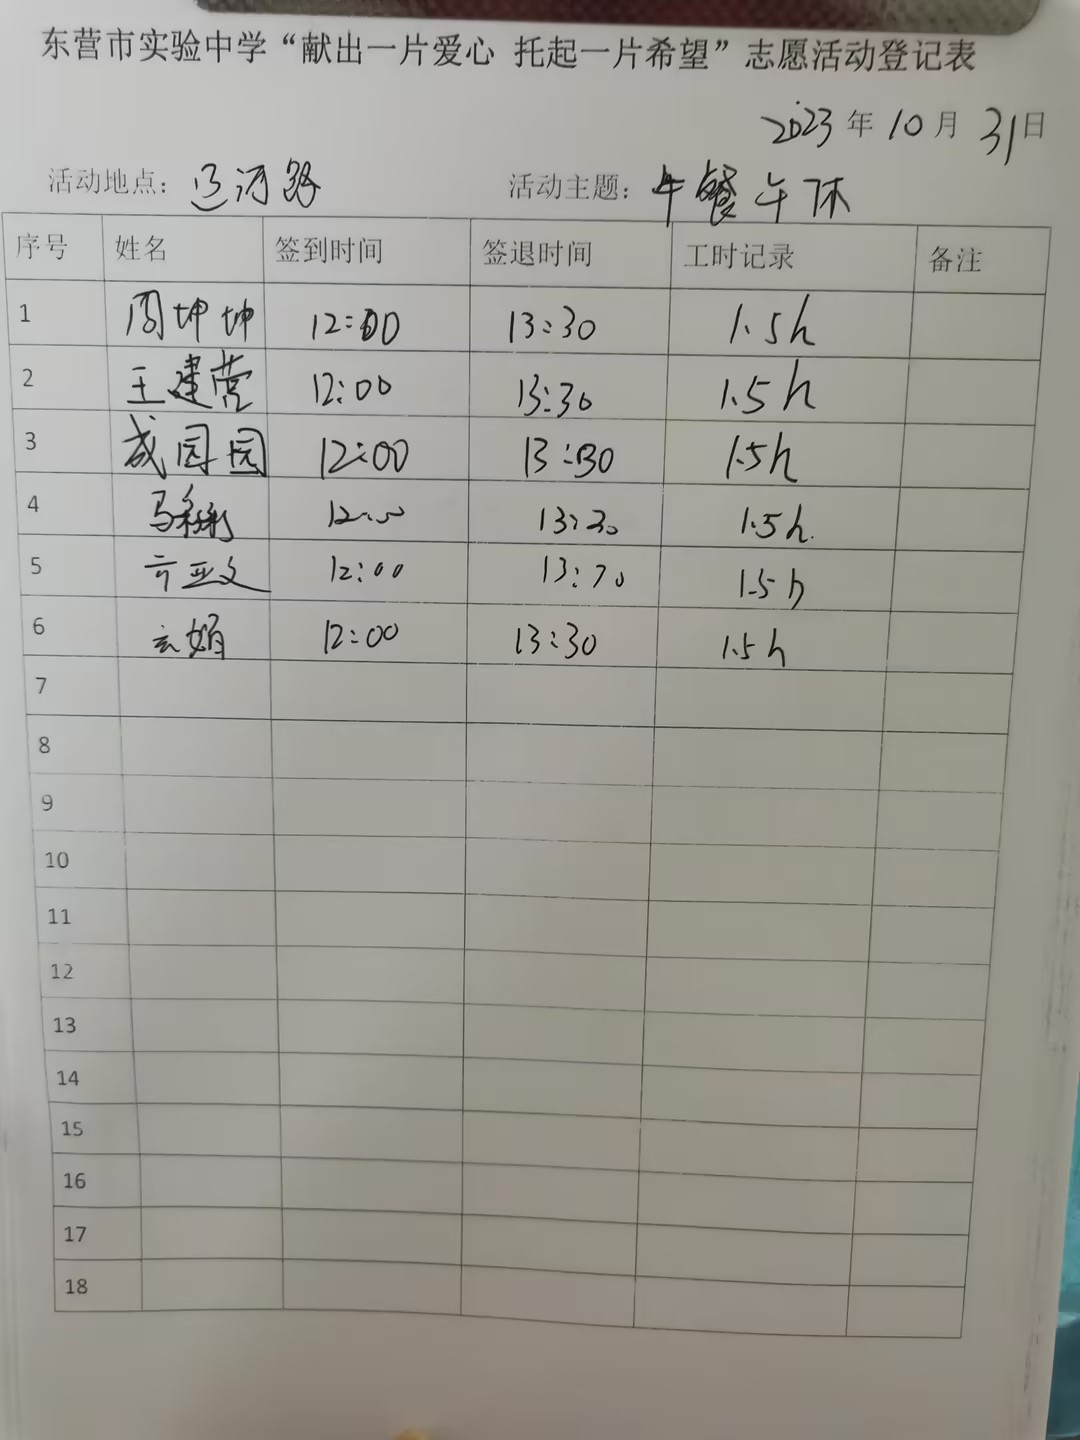 东营市实验中学“献出一片爱心 托起一片希望”志愿活动登记表
2023年10月31日
活动地点：辽河路 活动主题：午餐午休
序号 姓名 签到时间 签退时间 工时记录 备注
1 周坤坤 12:00 13:30 1.5h
2 王建营 12:00 13:30 1.5h
3 成园园 12:00 13:30 1.5h
4 马 12:00 13:30 1.5h.
5 亚文 12:00 13:30 1.5h
6 娟 12:00 13:30 1.5h
7
8
9
10
11
12
13
14
15
16
17
18